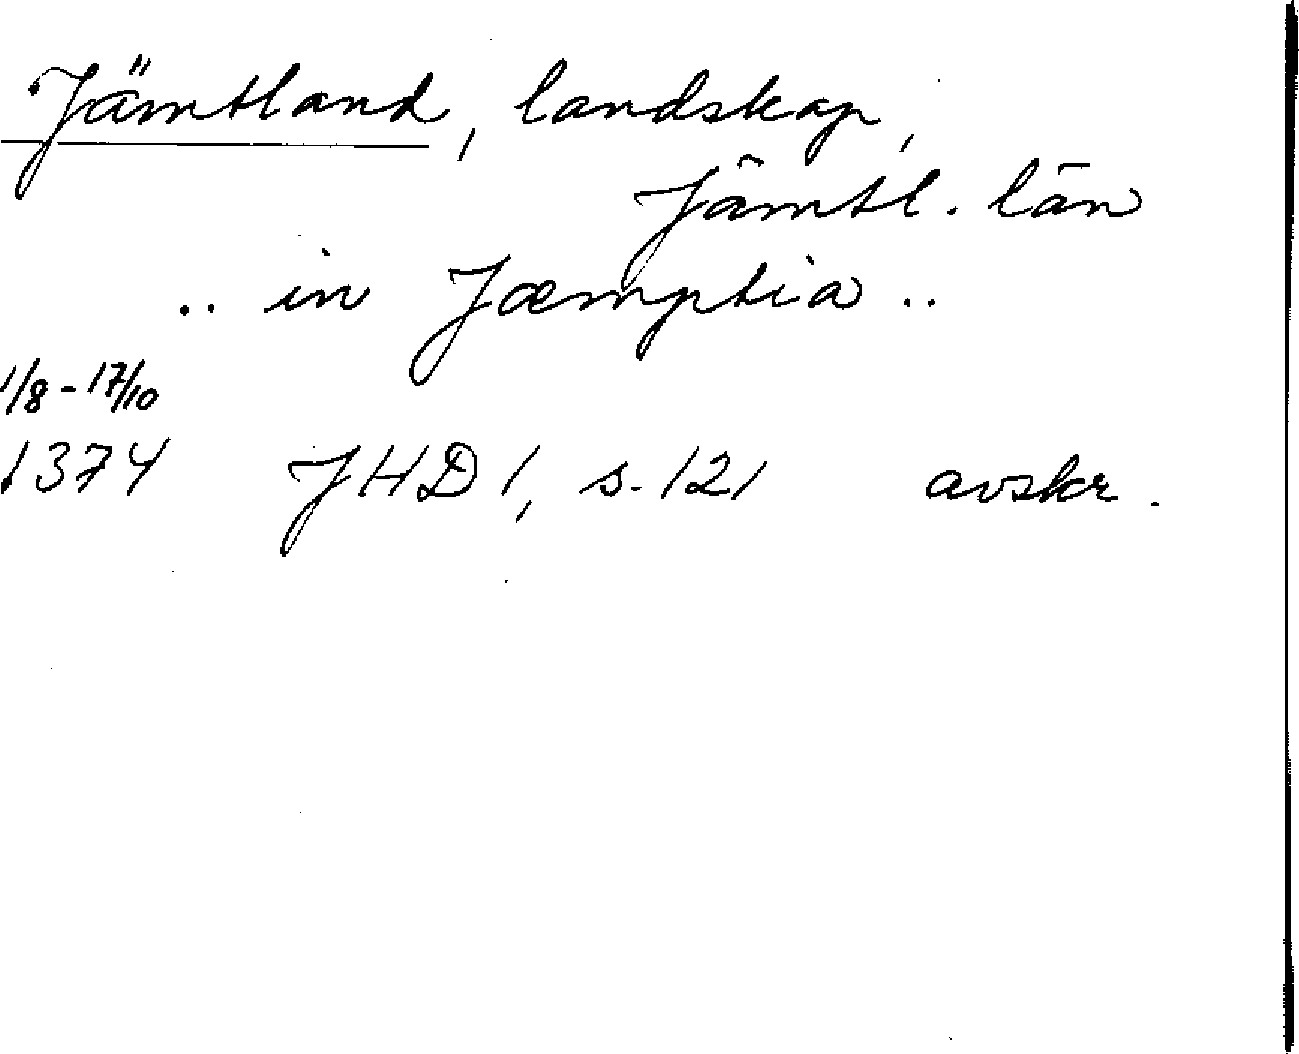 Jämtland, landskap,
Jämtl. län
.. in Jæmptia ..
1/8 - 17/10
1374 JHD 1, s. 121 avskr.